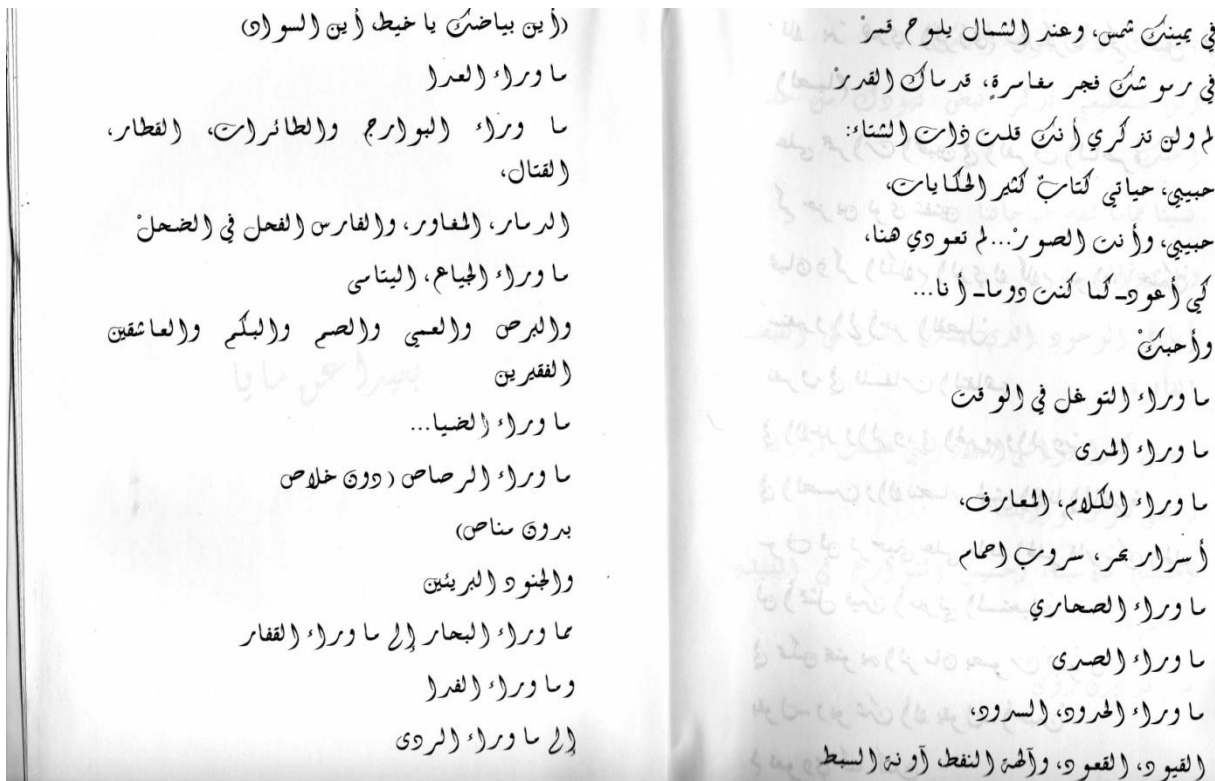 في يمينك شمس، وعند الشمال يلوح قمرْ
في رموشك فجر مغامرةٍ، قدماك القدرْ
لم ولن تذكري أنك قلت ذات الشتاء:
حبيبي، حياتي كتابٌ كثير الحكايات،
حبيبي، وأنت الصورْ...لم تعودي هنا،
كي أعود۔ كما كنت دوما۔ أنا...
وأحبكْ
ما وراء التوغل في الوقت
ما وراء المدى
ما وراء الكلام، المعارف،
أسرار بحر، سروب احمام
ما وراء الصحاري
ما وراء الصدى
ما وراء الحدود، السدود،
القيود، القعود، وآلهة النفط، آونة السبط
(أين بياضك يا خيط، أين السواد)
ما وراء العدا
ما وراء البوارج والطائرات، القطار،
القتال،
الدمار، المغاور، والفارس الفحل في الضحلْ
ما وراء الجياع، اليتامى
والبرص والعمي والصم والبكم والعاشقين
الفقيرين
ما وراء الضيا...
ما وراء الرصاص (دون خلاص
بدون مناص)
والجنود البريئين
مما وراء البحار إلى ما وراء القفار
وما وراء الفدا
إلى ما وراء الردى